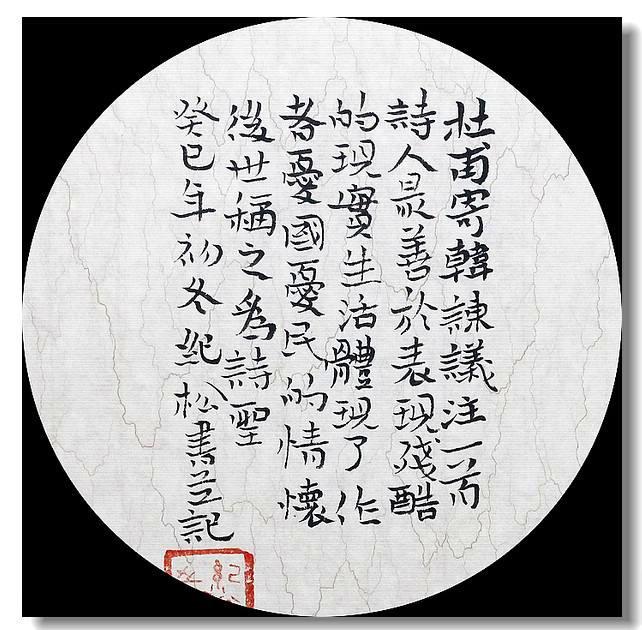 杜甫寄韓諫議注一首
詩人最善於表現殘酷
的現實生活體現了作
者憂國憂民的情懷
後世稱之為詩聖
癸巳年初冬紀松書並記